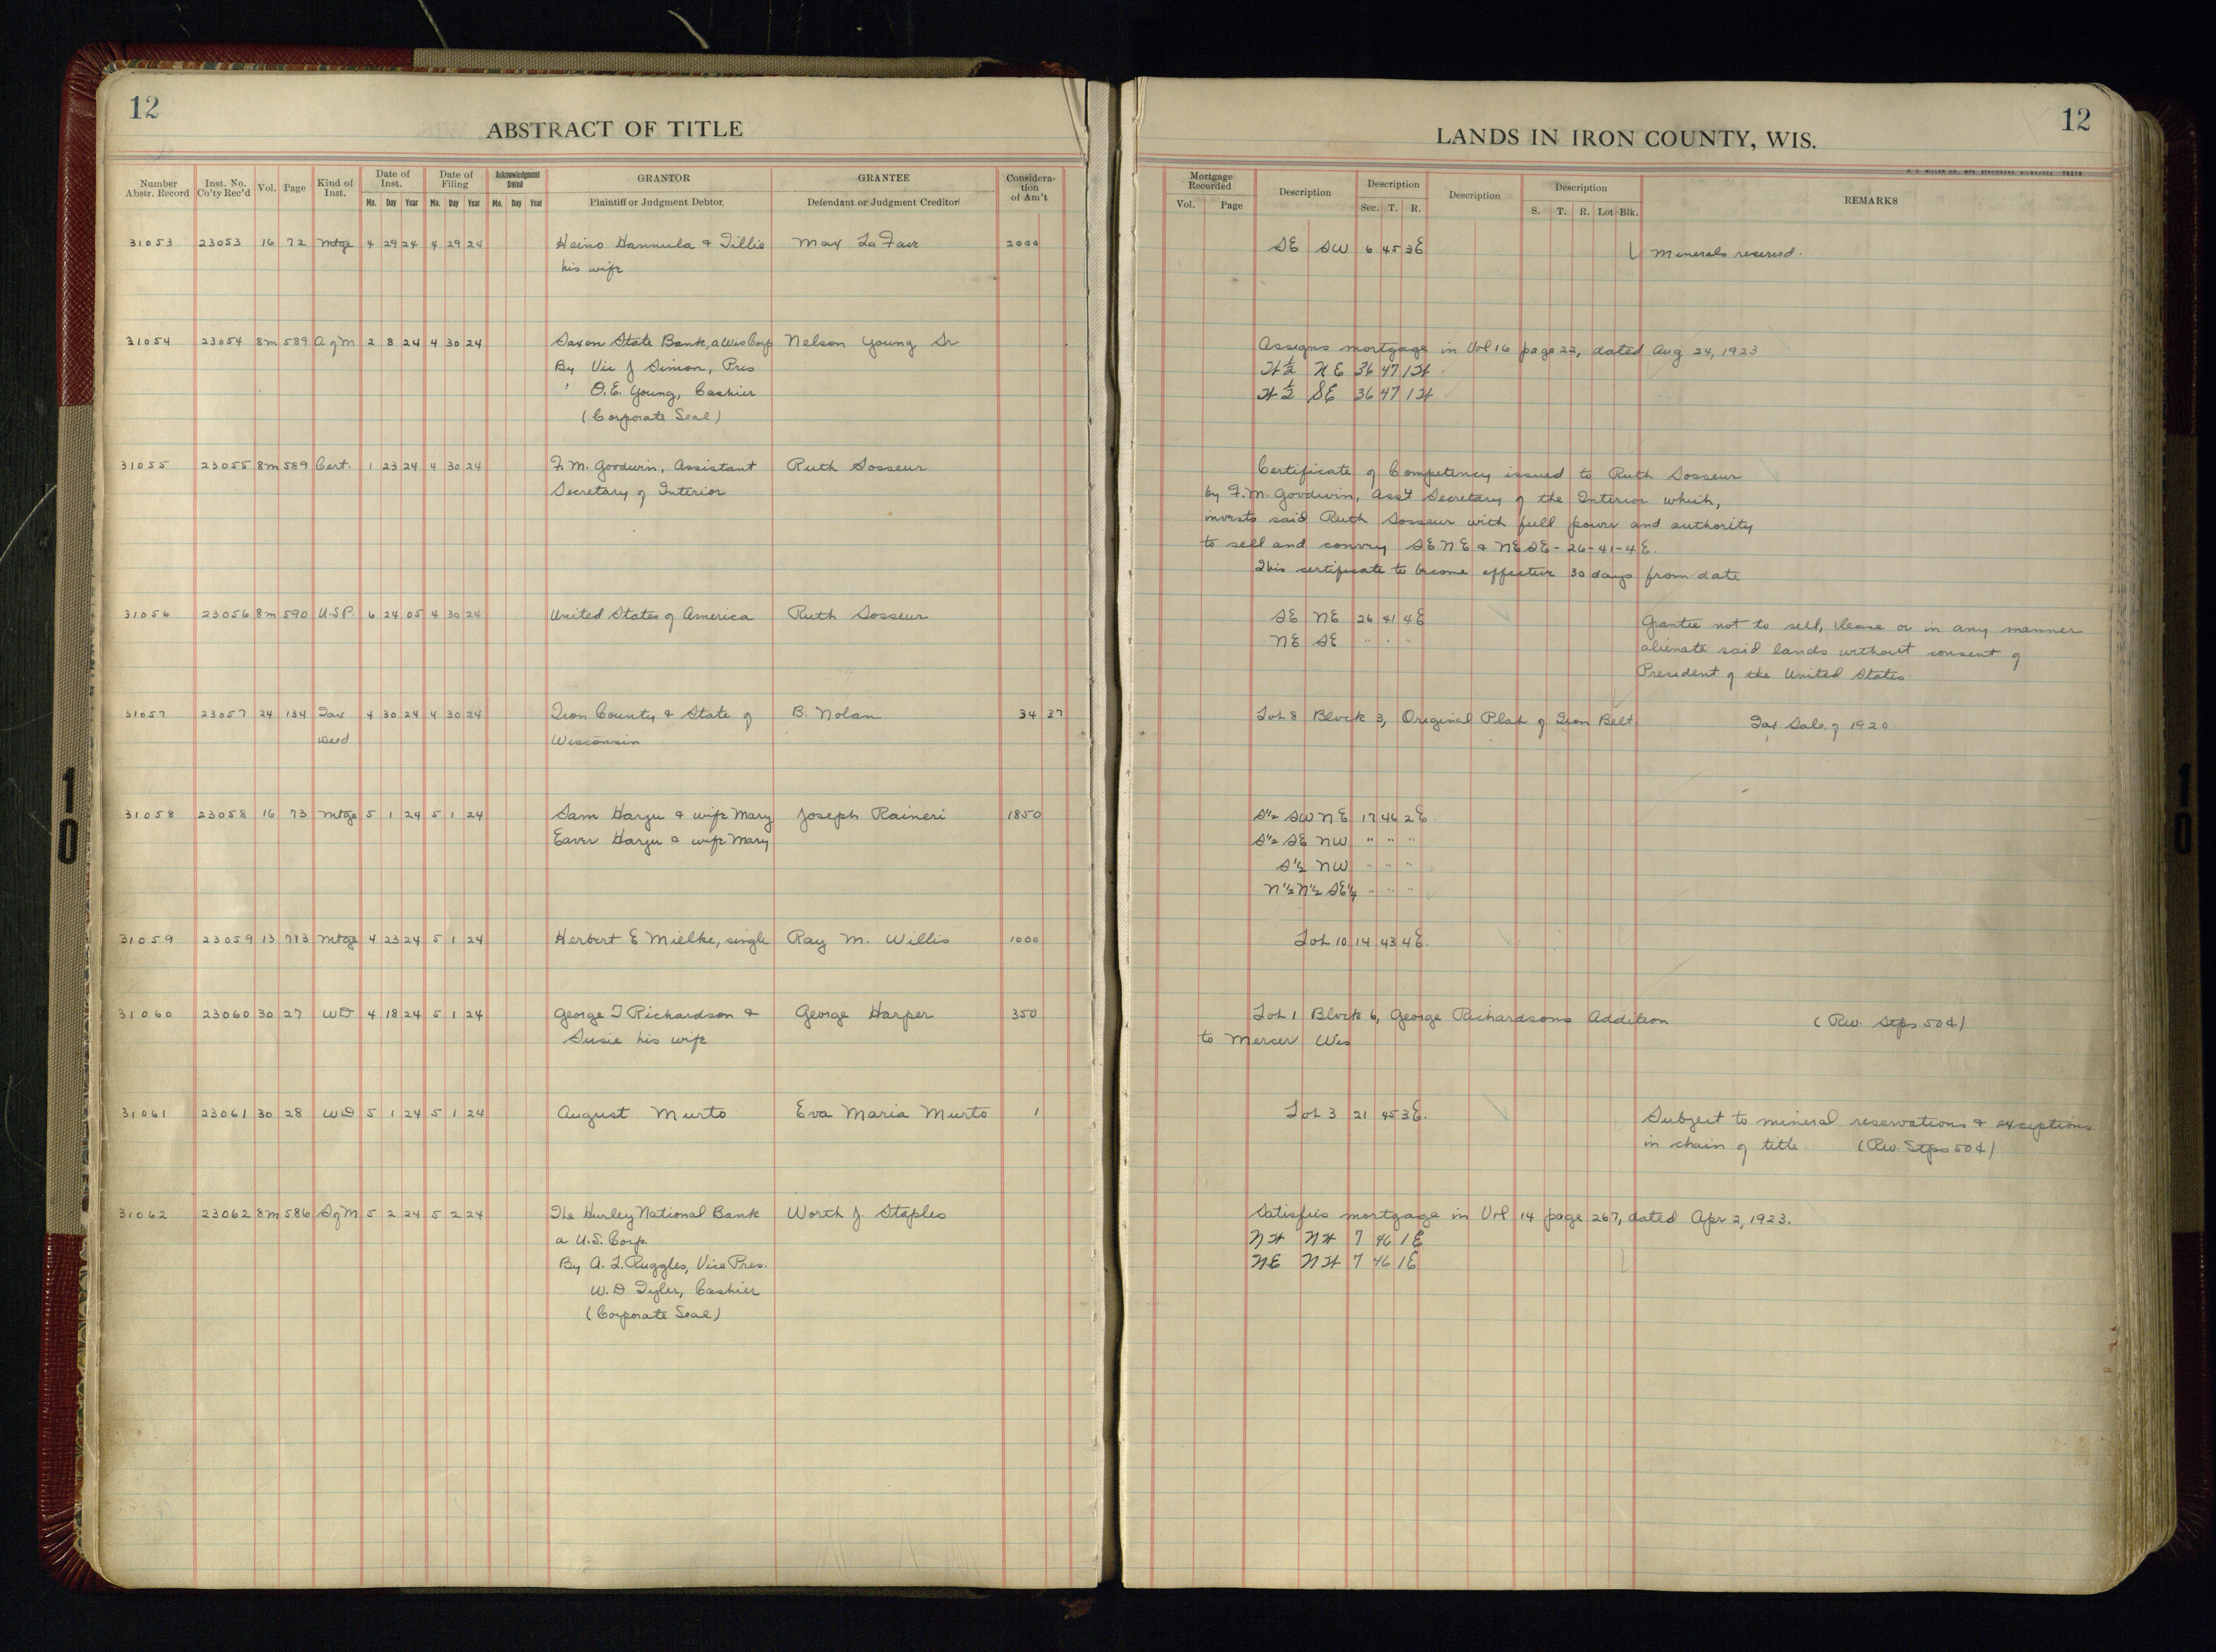 12
ABSTRACT OF TITLE
Number Abstr. Record | Inst. No. Co'ty Rec'd | Vol. | Page | Kind of Inst. | Date of Inst. Mo. Day Year | Date of Filing Mo. Day Year | Acknowledgment Dated Mo. Day Year | GRANTOR Plaintiff or Judgment Debtor | GRANTEE Defendant or Judgment Creditor | Consideration of Am't
31053 23053 16 72 Mtge 4 29 24 4 29 24 Heino Hannula & Tillie Max La Favr 2000
his wife
31054 23054 8m 589 A of M 2 8 24 4 30 24 Saxon State Bank, a Wis Corp Nelson Young Sr
By Vic J Simon, Pres
" O.E. Young, Cashier
(Corporate Seal)
31055 23055 8m 589 Cert. 1 23 24 4 30 24 F.M. Goodwin, Assistant Ruth Sosseur
Secretary of Interior
31056 23056 8m 590 U.S.P. 6 24 05 4 30 24 United States of America Ruth Sosseur
31057 23057 24 134 Tax 4 30 24 4 30 24 Iron County & State of B. Nolan 34 37
Deed Wisconsin
31058 23058 16 73 Mtge 5 1 24 5 1 24 Sam Harju & wife Mary Joseph Raineri 1850
Eaver Harju & wife Mary
31059 23059 13 Mtge 4 23 24 5 1 24 Herbert E Mielke, single Ray M. Willis 1000
31060 23060 30 27 WD 4 18 24 5 1 24 George T Richardson & George Harper 350
Susie his wife
31061 23061 30 28 WD 5 1 24 5 1 24 August Murto Eva Maria Murto 1
31062 23062 8m 586 S of M 5 2 24 5 2 24 The Hurley National Bank Worth J. Staples
a U.S. Corp.
By A.L. Ruggles, Vice Pres.
W.D Tyler, Cashier
(Corporate Seal)
12
LANDS IN IRON COUNTY, WIS.
H. C. MILLER CO., MFG. STATIONERS, MILWAUKEE
Mortgage Recorded Vol. Page | Description | Description Sec. T. R. | Description | Description S. T. R. Lot Blk. | REMARKS
SE SW 6 45 3E Minerals reserved.
Assigns mortgage in Vol 16 page 22, dated Aug 24, 1923
W ½ NE 36 47 1W
W ½ SE 36 47 1W
Certificate of Competency issued to Ruth Sosseur
by F.M. Goodwin, Ass't Secretary of the Interior which,
invests said Ruth Sosseur with full power and authority
to sell and convey SE NE & NE SE - 26-41-4E.
This certificate to become effective 30 days from date
SE NE 26 41 4E Grantee not to sell, lease or in any manner
NE SE " " " alienate said lands without consent of
President of the United States.
Lot 8 Block 3, Original Plat of Iron Belt Tax Sale of 1920
S½ SW NE 17 46 2E
S½ SE NW " " "
S½ NW " " "
N½ N½ SE¼ " " "
Lot 10 14 43 4E.
Lot 1 Block 6, George Richardsons Addition (Rev. Stps 50¢)
to Mercer Wis
Lot 3 21 45 3E. Subject to mineral reservations & exceptions
in chain of title. (Rev. Stps 50¢)
Satisfies mortgage in Vol 14 page 267, dated Apr 2, 1923.
NW NW 7 46 1E
NE NW 7 46 1E
10
10